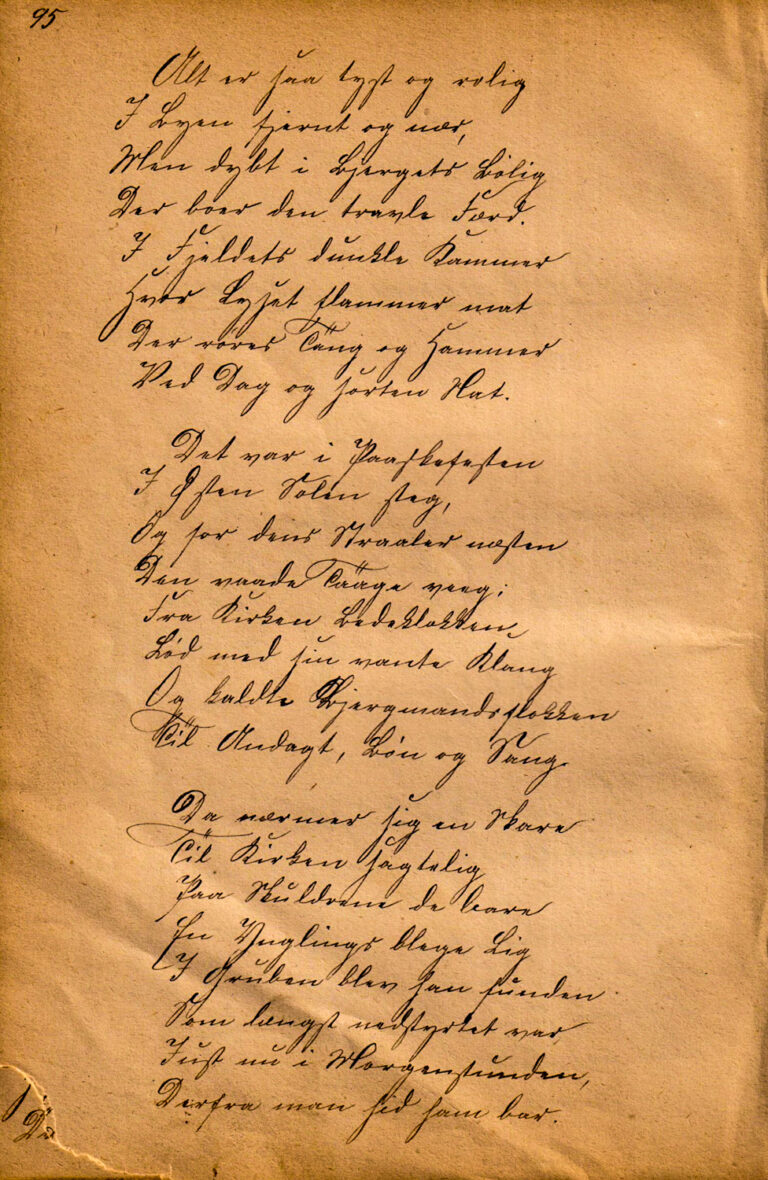 95
Alt er saa tyst og rolig
I Byen fjernt og nær,
Men dybt i Bjergets Bolig
Der boer den travle Færd.
I Fjeldets dunkle Kammer
Hvor Lyset flammer mat
Der røres Tang og Hammer
Ved Dag og sorten Nat.
Det var i Paaskefesten
I Østen Solen steg,
Og for dens Straaler næsten
Den vaade Taage veeg;
Fra Kirken Bedeklokken
Lød med sin vante Klang
Og kaldte Bjergmandsflokken
Til Andagt, Bøn og Sang.
Da nærmer sig en Skare
Til Kirken sagtelig
Paa Skuldrene de bare
En Ynglings blege Lig
I Gruben blev han funden
Som længst nedstyrtet var
Just nu i Morgenstunden,
Derfra man hid ham bar.